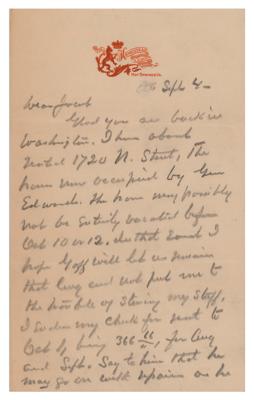 Hot Springs, Va.
Sept 4 -
Dear Jacob
Glad you are back in
Washington. I have about
rented 1720 N. Street, the
house now occupied by Gen
Edwards. The house may possibly
not be entirely vacated before
Oct 10 or 12. In that event I
hope Goff will let us remain
that long and not put me to
the trouble of storing my stuff.
I enclose my check for rent to
Oct 1, being 366 66/, for Aug
and Sept. Say to him that he
may go on with repairs as he